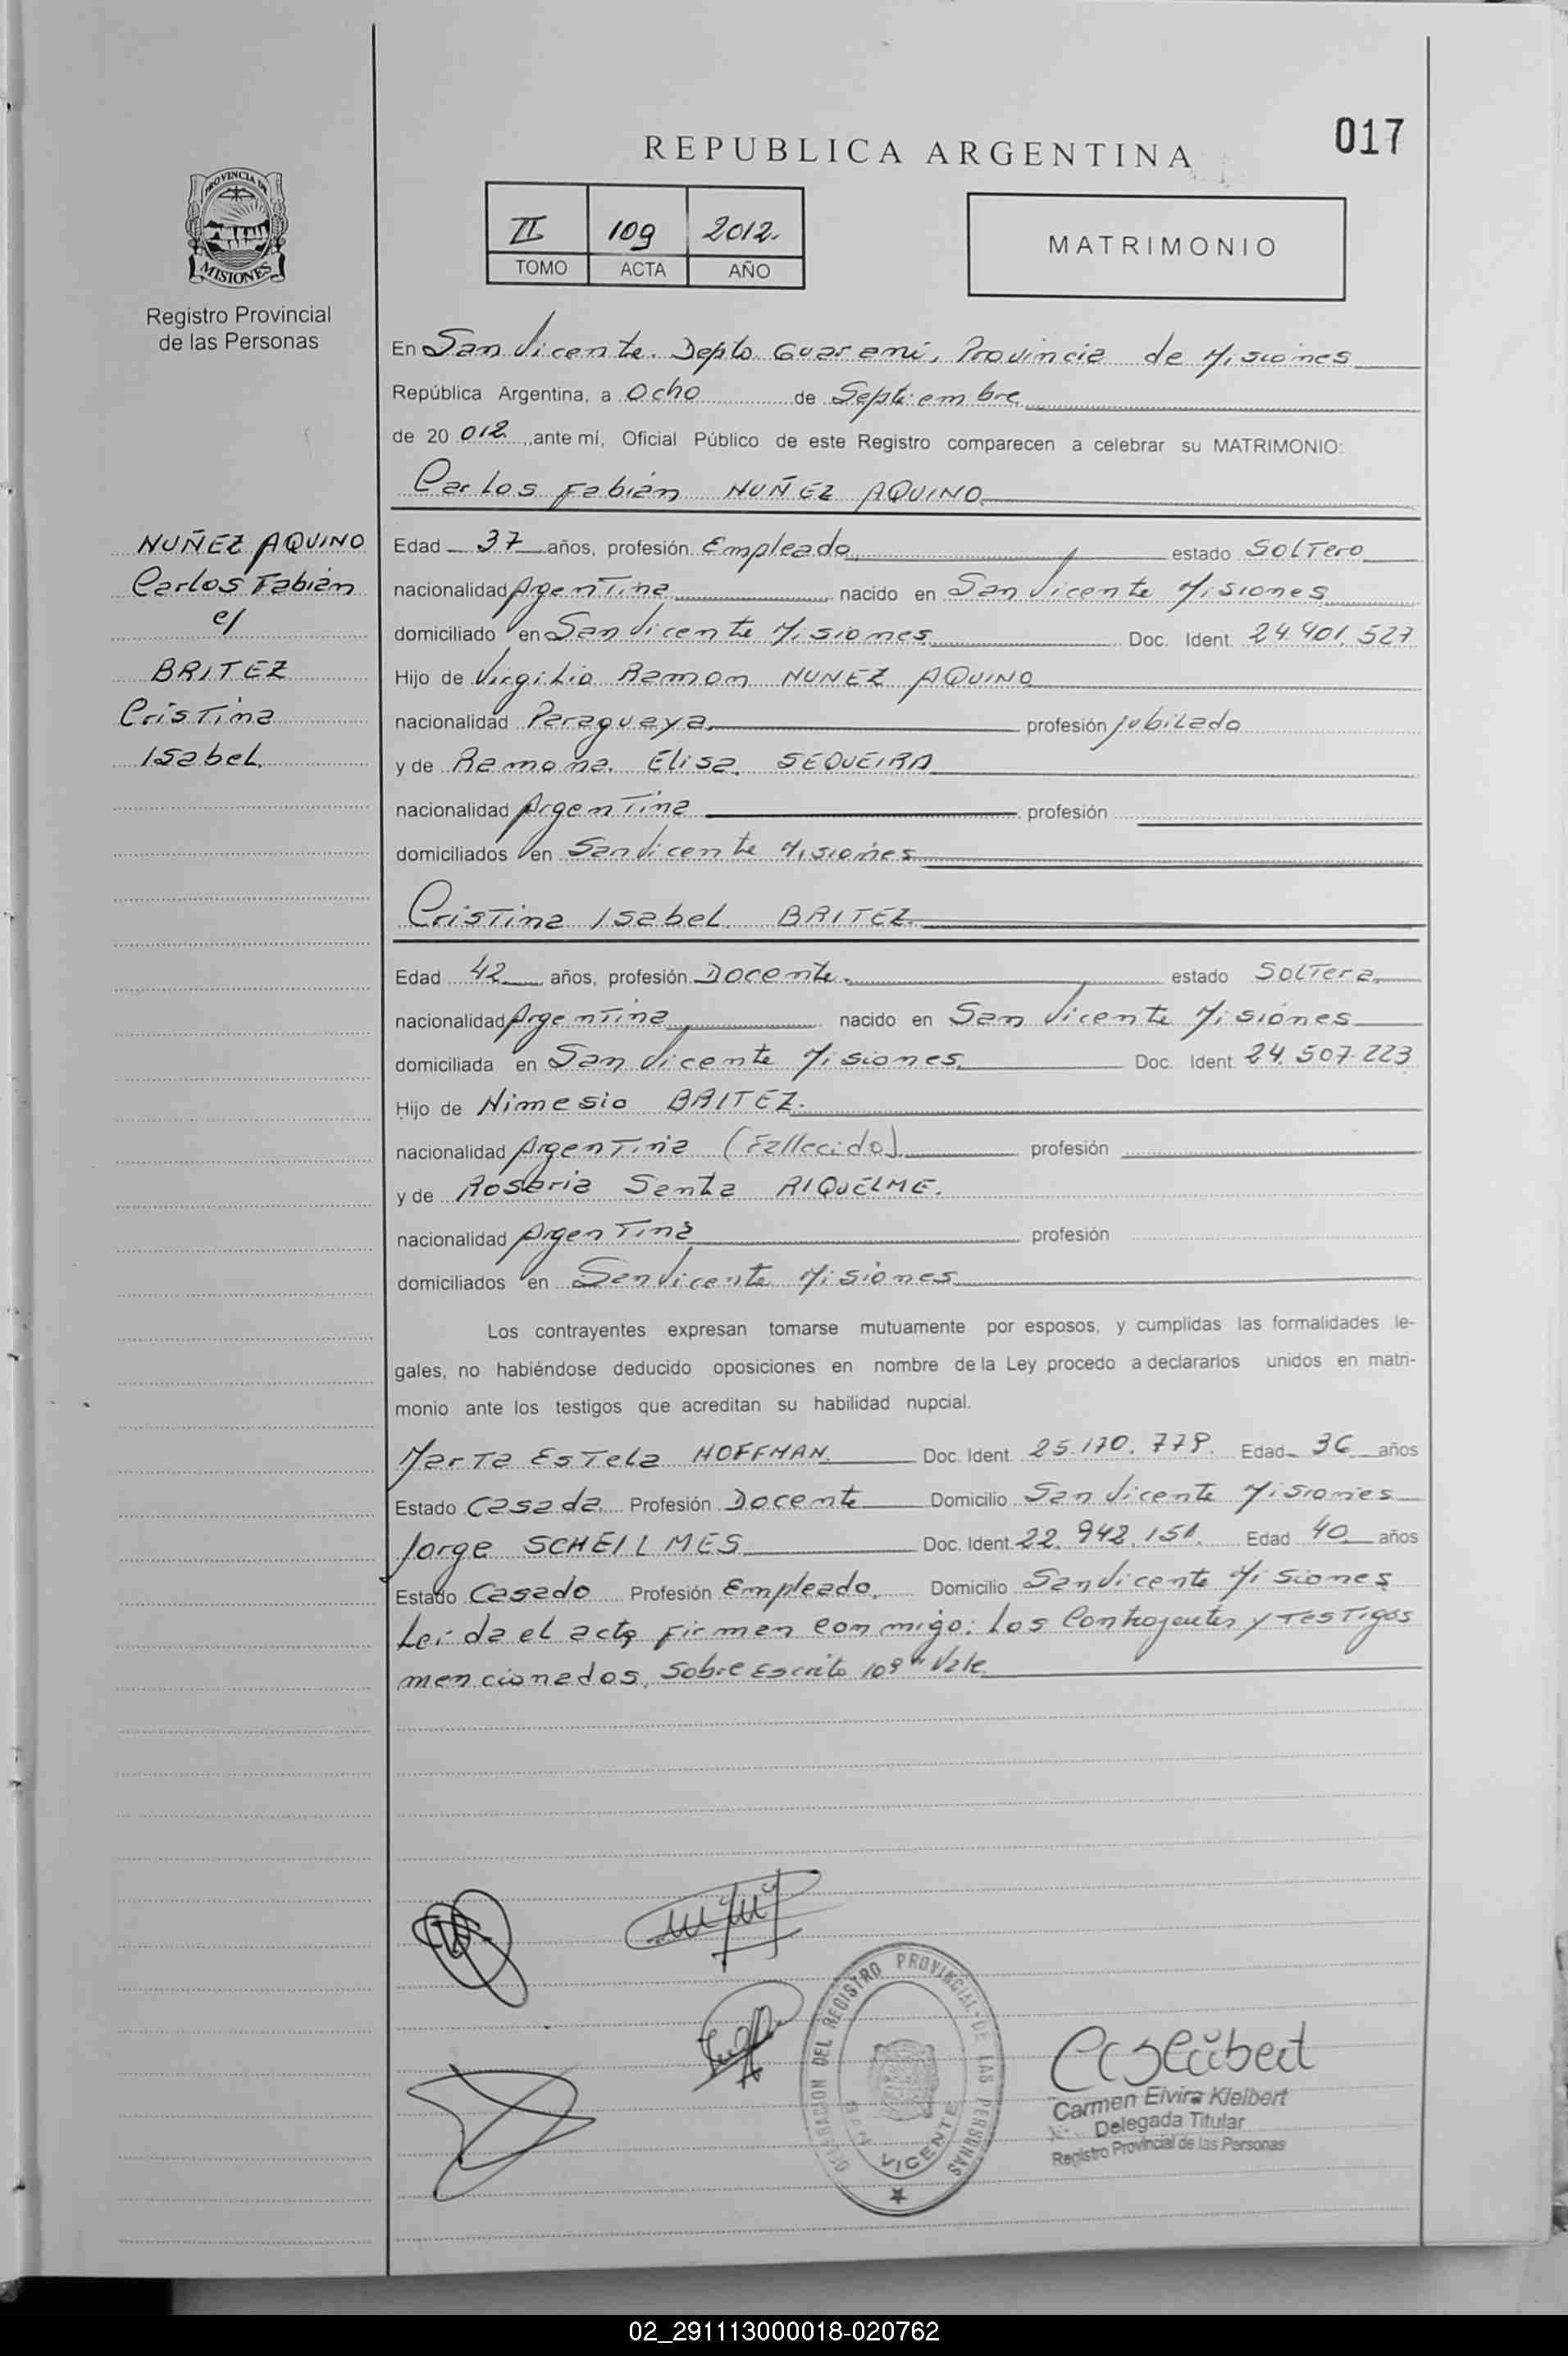 017
REPUBLICA ARGENTINA
PROVINCIA DE
MISIONES
Registro Provincial
de las Personas
II 109 2012.
TOMO ACTA AÑO
MATRIMONIO
En San Vicente. Depto. Guarani, Provincia de Misiones
República Argentina, a Ocho de Septiembre
de 20 012 ,ante mí, Oficial Público de este Registro comparecen a celebrar su MATRIMONIO:
Carlos Fabián NUÑEZ AQUINO
NUÑEZ AQUINO
Carlos Fabián
c/
BRITEZ
Cristina
Isabel.
Edad 37 años, profesión Empleado, estado Soltero
nacionalidad Argentina nacido en San Vicente Misiones
domiciliado en San Vicente Misiones Doc. Ident. 24.401.527
Hijo de Virgilio Ramon NUNEZ AQUINO
nacionalidad Paraguaya profesión jubilado
y de Ramona. Elisa. SEQUEIRA
nacionalidad Argentina profesión
domiciliados en San Vicente Misiones
Cristina Isabel. BRITEZ
Edad 42 años, profesión Docente. estado Soltera
nacionalidad Argentina nacido en San Vicente Misiones
domiciliada en San Vicente Misiones. Doc. Ident. 24.507.223
Hijo de Nimesio BRITEZ.
nacionalidad Argentina (Fallecido) profesión
y de Rosaria Santa RIQUELME.
nacionalidad Argentina profesión
domiciliados en San Vicente Misiones
Los contrayentes expresan tomarse mutuamente por esposos, y cumplidas las formalidades le-
gales, no habiéndose deducido oposiciones en nombre de la Ley procedo a declararlos unidos en matri-
monio ante los testigos que acreditan su habilidad nupcial.
Marta Estela HOFFMAN Doc. Ident. 25.170.779. Edad 36 años
Estado Casada. Profesión Docente Domicilio San Vicente Misiones
Jorge SCHEILMES Doc. Ident. 22.942.151. Edad 40 años
Estado Casado Profesión Empleado. Domicilio San Vicente Misiones
Leida el acta firman conmigo: Los Contrayentes y Testigos
mencionados, Sobre Escrito 109" Vale
DEL REGISTRO PROVINCIAL DE LAS PERSONAS
SAN VICENTE
Carmen Elvira Kleibert
Delegada Titular
Registro Provincial de las Personas
02_291113000018-020762